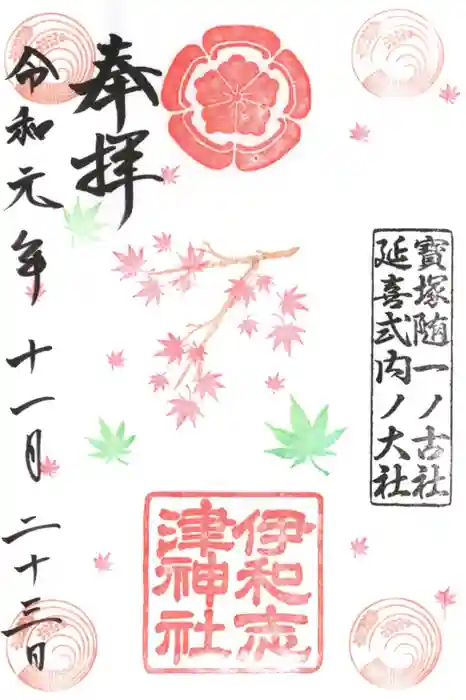 寶塚随一ノ古社
延喜式内ノ大社
伊和志
津神社
奉拝
令和元年十一月二十三日